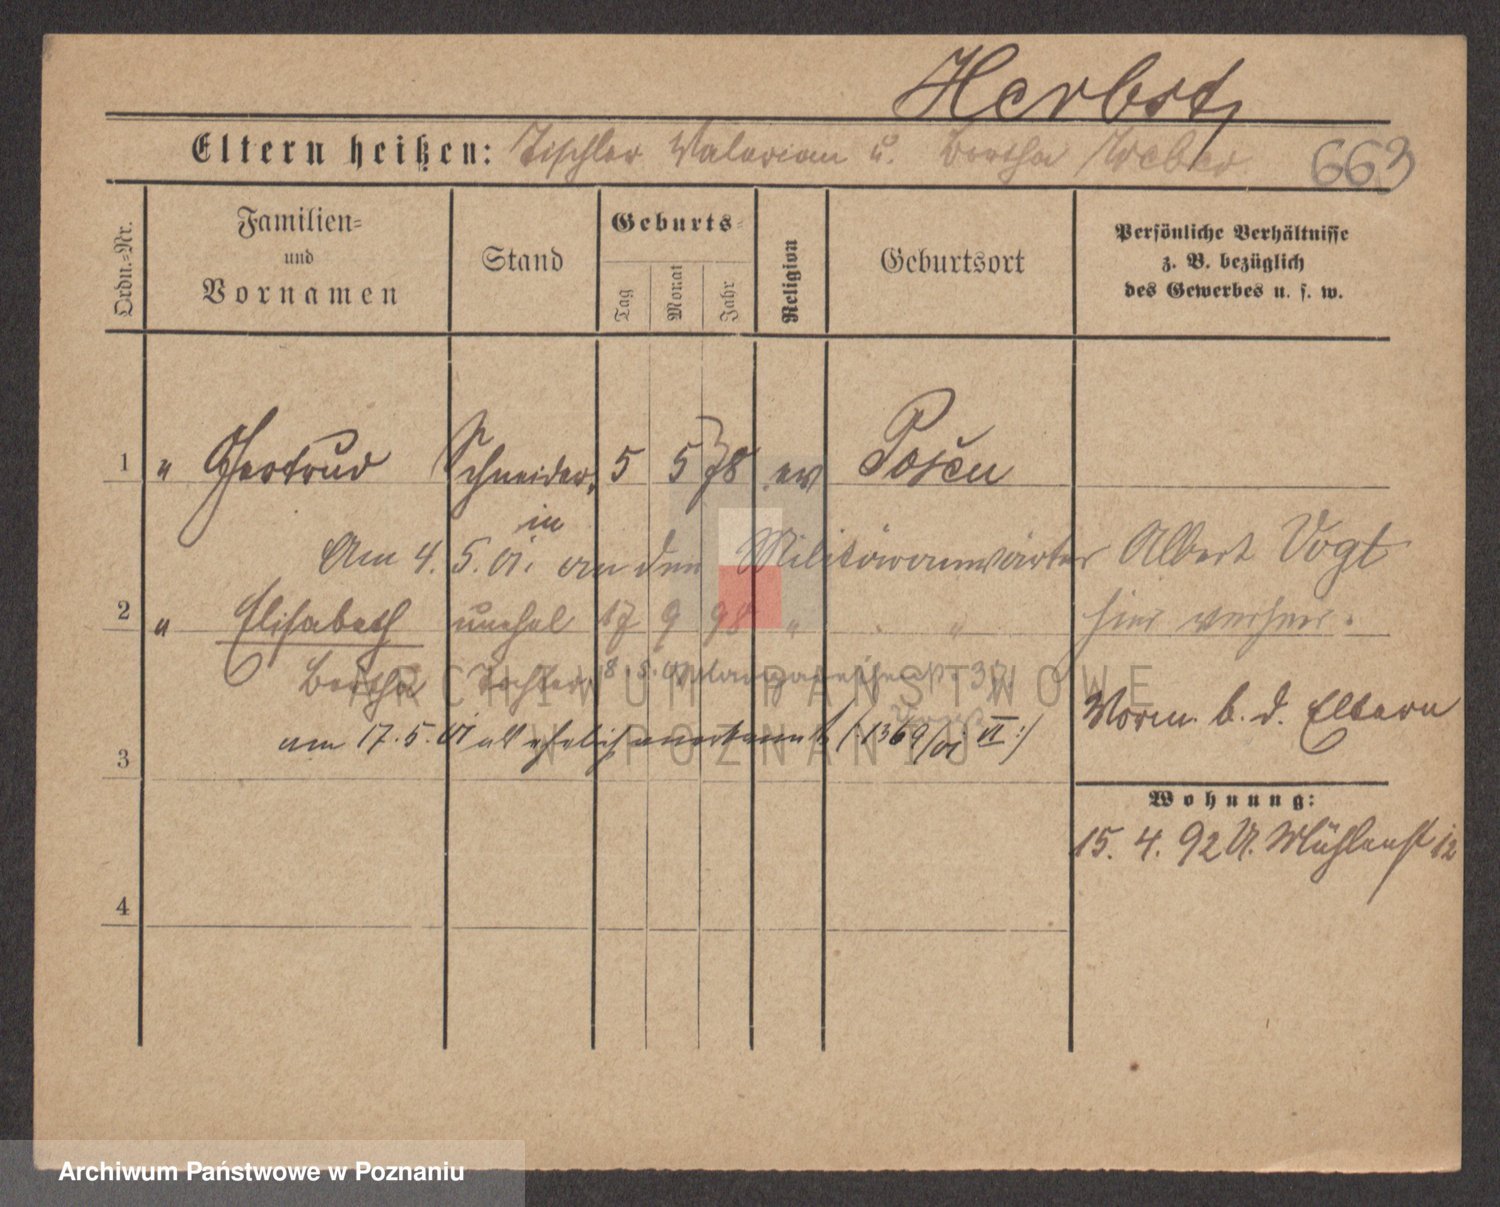 Herbst,
Eltern heißen: Tischler Valerian u. Bertha Weber 663
Ordn.-Nr.
Familien- und Vornamen
Stand
Geburts-
Tag Monat Jahr
Religion
Geburtsort
Persönliche Verhältnisse z. B. bezüglich des Gewerbes u. s. w.
1 " Gertrud Schneider, 5 5 78 ev Posen
in
Am 4. 5. 01. an den Militäranwärter Albert Vogt
2 " Elisabeth unehel 17 9 98 " " hier verheir.
Bertha Tochter 8. 5. 01
Vorm. b. d. Eltern
am 17. 5. 01 als ehelich anerkannt (:1369/01 II:)
3
Wohnung:
15. 4. 92 U. Mühlenst 12
4
ARCHIWUM PAŃSTWOWE
W POZNANIU
Archiwum Państwowe w Poznaniu